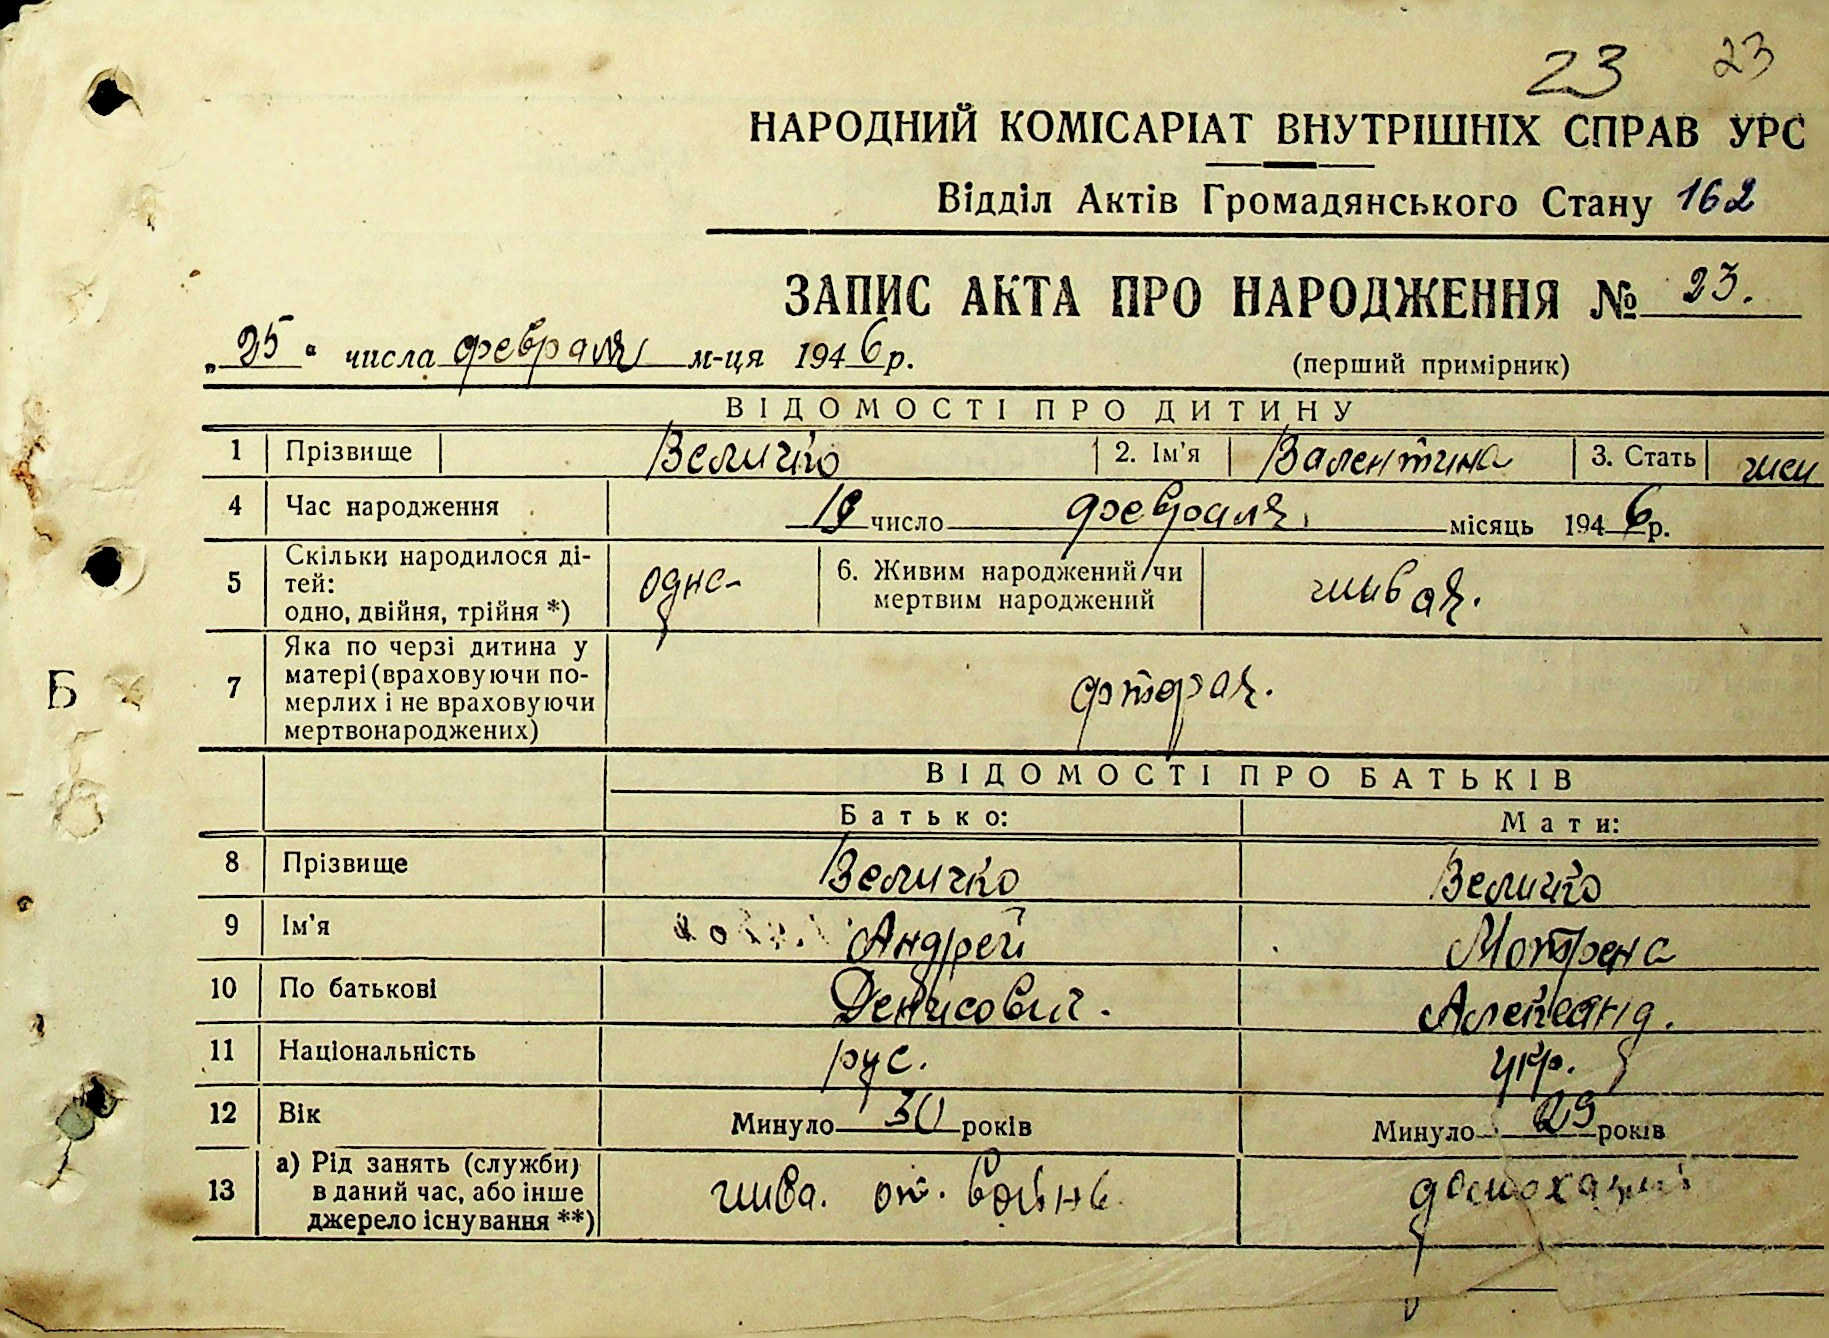 23 23
НАРОДНИЙ КОМІСАРІАТ ВНУТРІШНІХ СПРАВ УРС
Відділ Актів Громадянського Стану 162
ЗАПИС АКТА ПРО НАРОДЖЕННЯ № 23.
„25“ числа февраля м-ця 1946 р.
(перший примірник)
ВІДОМОСТІ ПРО ДИТИНУ
1 Прізвище Величко 2. Ім'я Валентина 3. Стать жен
4 Час народження 19 число февраля місяць 1946 р.
5 Скільки народилося ді-
тей:
одно, двійня, трійня *) одна
6. Живим народжений чи
мертвим народжений живая.
7 Яка по черзі дитина у
матері (враховуючи по-
мерлих і не враховуючи
мертвонароджених) фторая.
Б
ВІДОМОСТІ ПРО БАТЬКІВ
Батько: Мати:
8 Прізвище Величко Величко
9 Ім'я Андрей Мотрена
10 По батькові Денисович. Александ.
11 Національність рус. укр.
12 Вік Минуло 30 років Минуло 29 років
13 а) Рід занять (служби)
в даний час, або інше
джерело існування **) от. войны